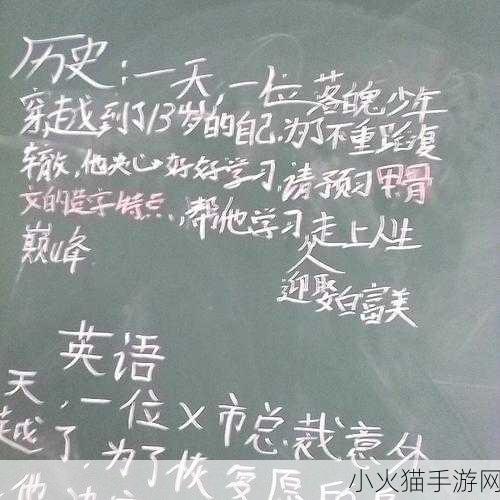 历史：一天，一位落魄少年
穿越到了13岁的自己，为了不重蹈复
辙，他决心好好学习，请预习甲骨
文的造字特点，帮他学习，走上人生
巅峰
迎娶白富美
英语
天，一位X市总裁意外
越了，为了恢复原
小火猫手游网